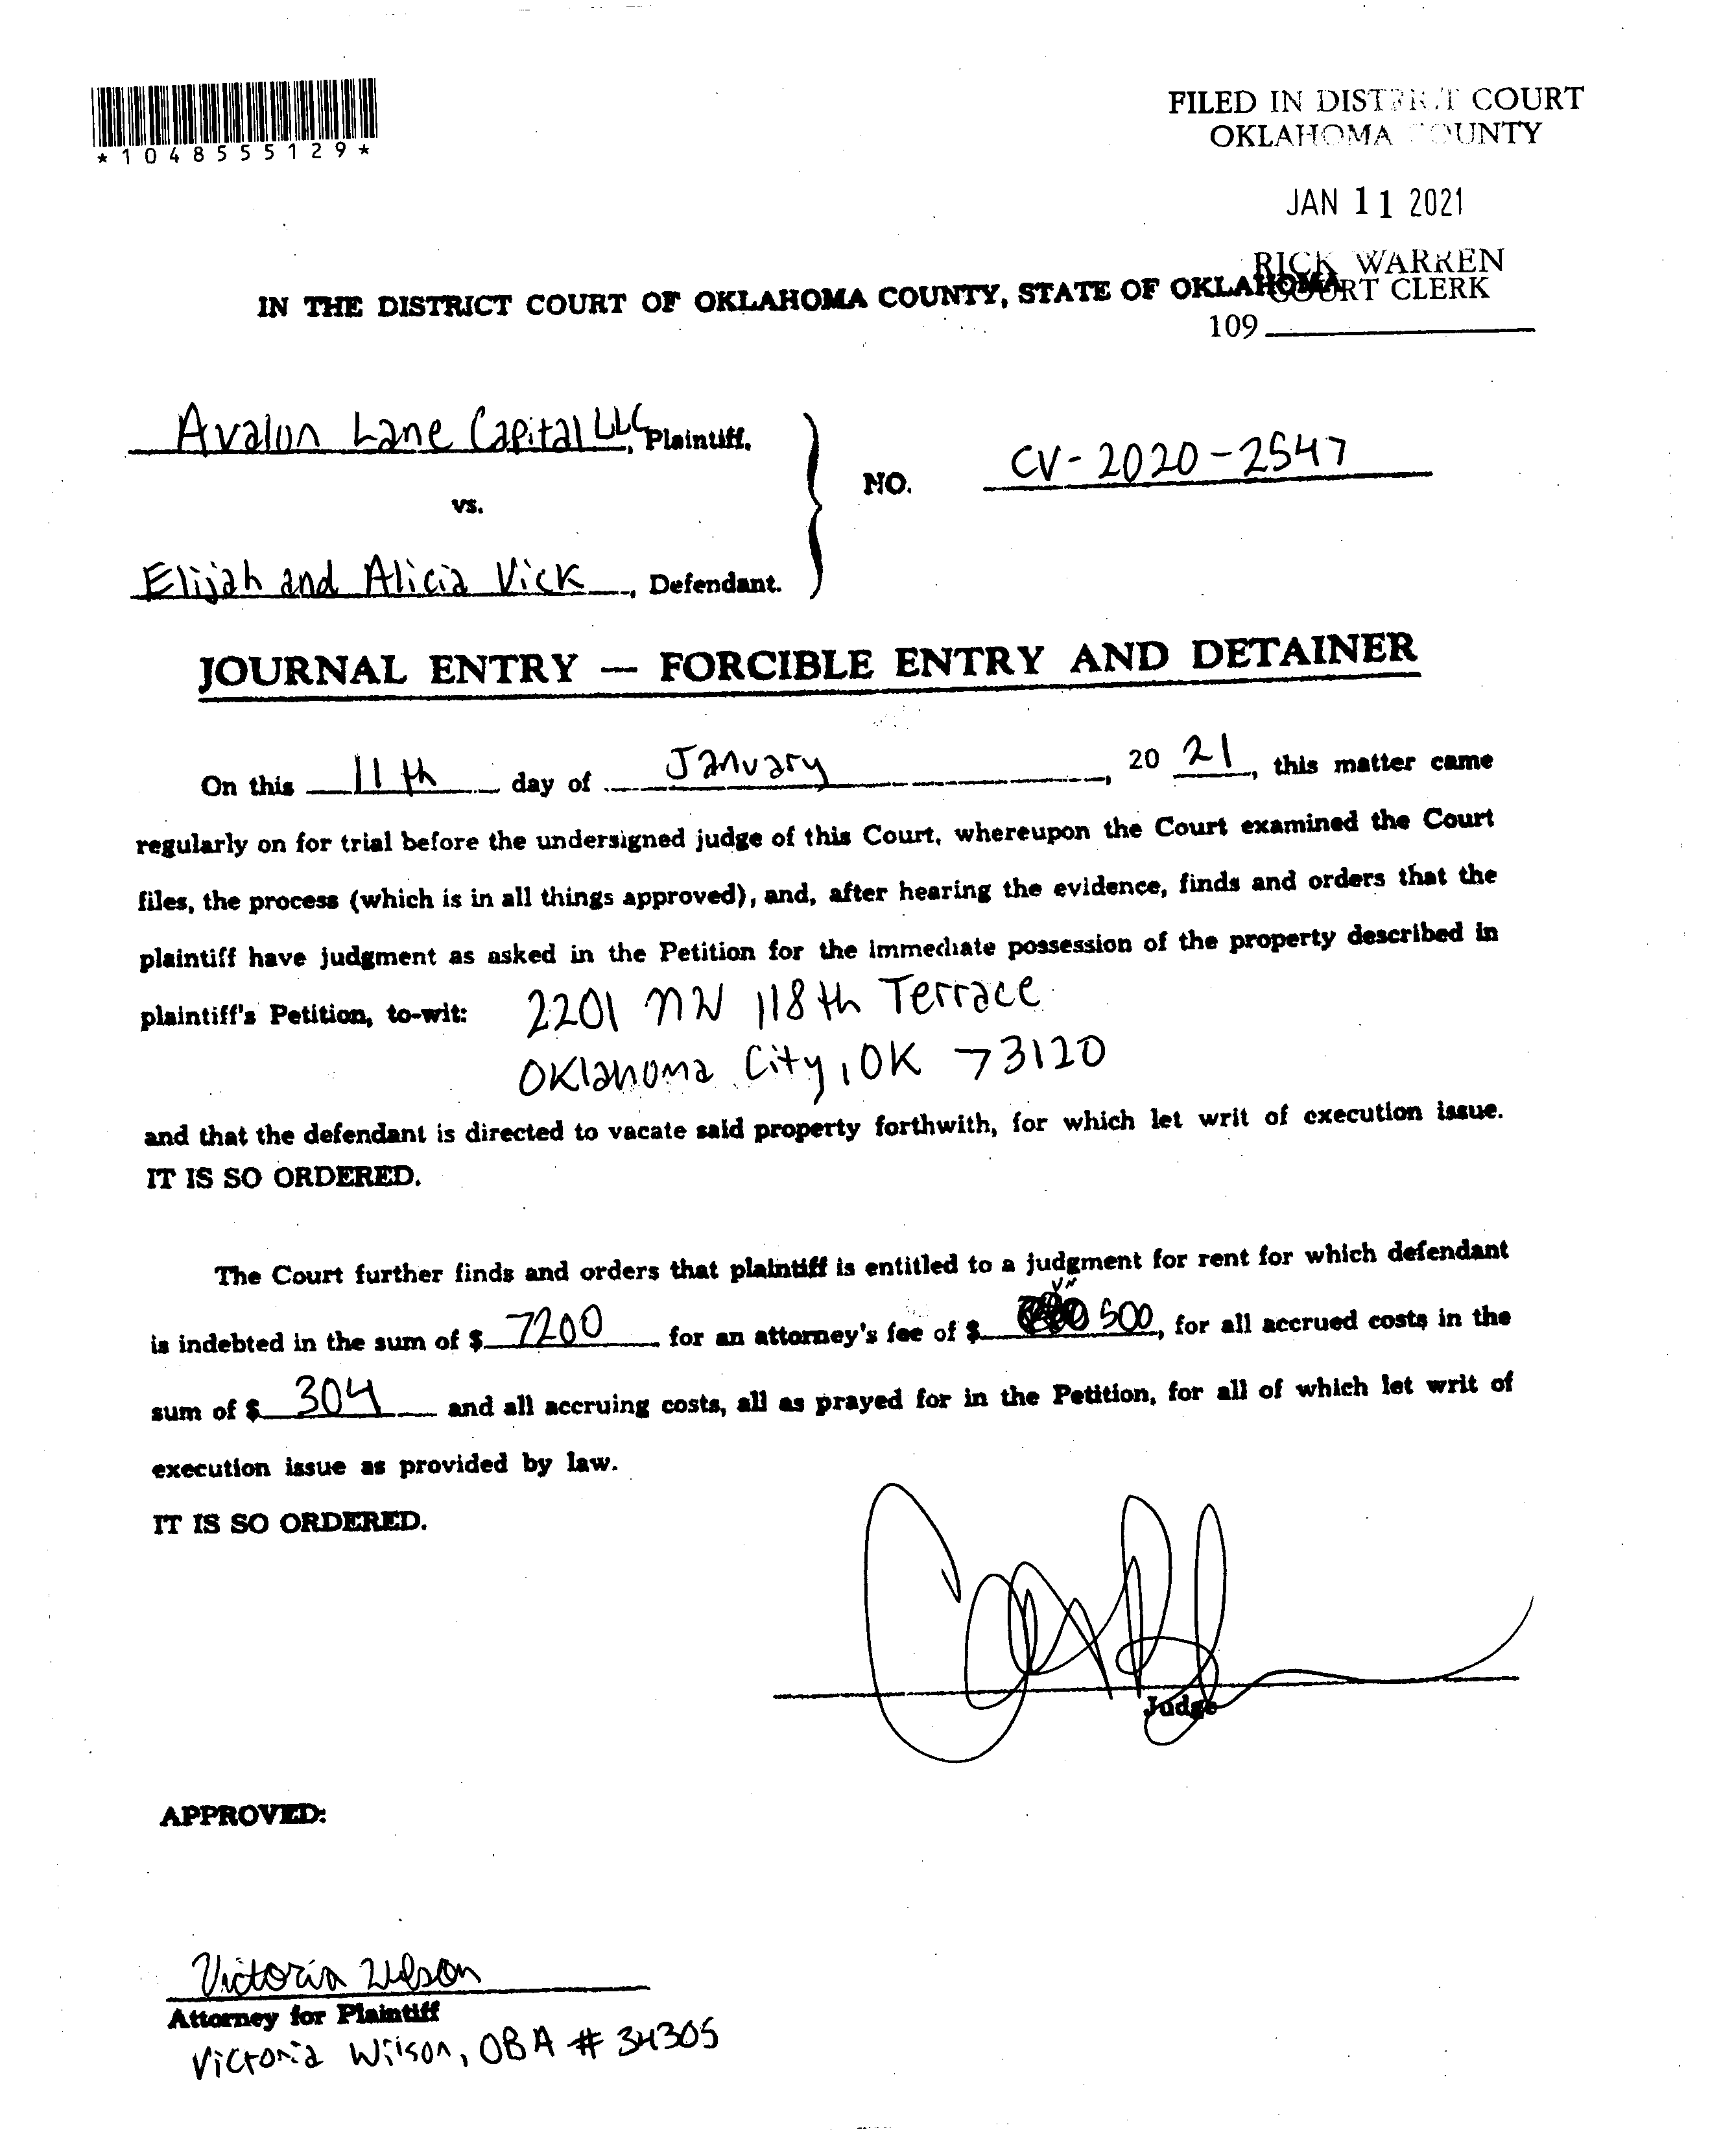 *1048555129*
FILED IN DISTRICT COURT
OKLAHOMA COUNTY
JAN 11 2021
RICK WARREN
COURT CLERK
IN THE DISTRICT COURT OF OKLAHOMA COUNTY, STATE OF OKLAHOMA
109
Avalon Lane Capital LLC, Plaintiff,
vs.
NO. CV-2020-2547
Elijah and Alicia Vick, Defendant.
JOURNAL ENTRY — FORCIBLE ENTRY AND DETAINER
On this 11th day of January, 20 21, this matter came
regularly on for trial before the undersigned judge of this Court, whereupon the Court examined the Court
files, the process (which is in all things approved), and, after hearing the evidence, finds and orders that the
plaintiff have judgment as asked in the Petition for the immediate possession of the property described in
plaintiff's Petition, to-wit: 2201 NW 118th Terrace
Oklahoma City, OK 73120
and that the defendant is directed to vacate said property forthwith, for which let writ of execution issue.
IT IS SO ORDERED.
The Court further finds and orders that plaintiff is entitled to a judgment for rent for which defendant
is indebted in the sum of $ 7200 for an attorney's fee of $ 500, for all accrued costs in the
sum of $ 304 and all accruing costs, all as prayed for in the Petition, for all of which let writ of
execution issue as provided by law.
IT IS SO ORDERED.
Judge
APPROVED:
Victoria Wilson
Attorney for Plaintiff
Victoria Wilson, OBA # 34305